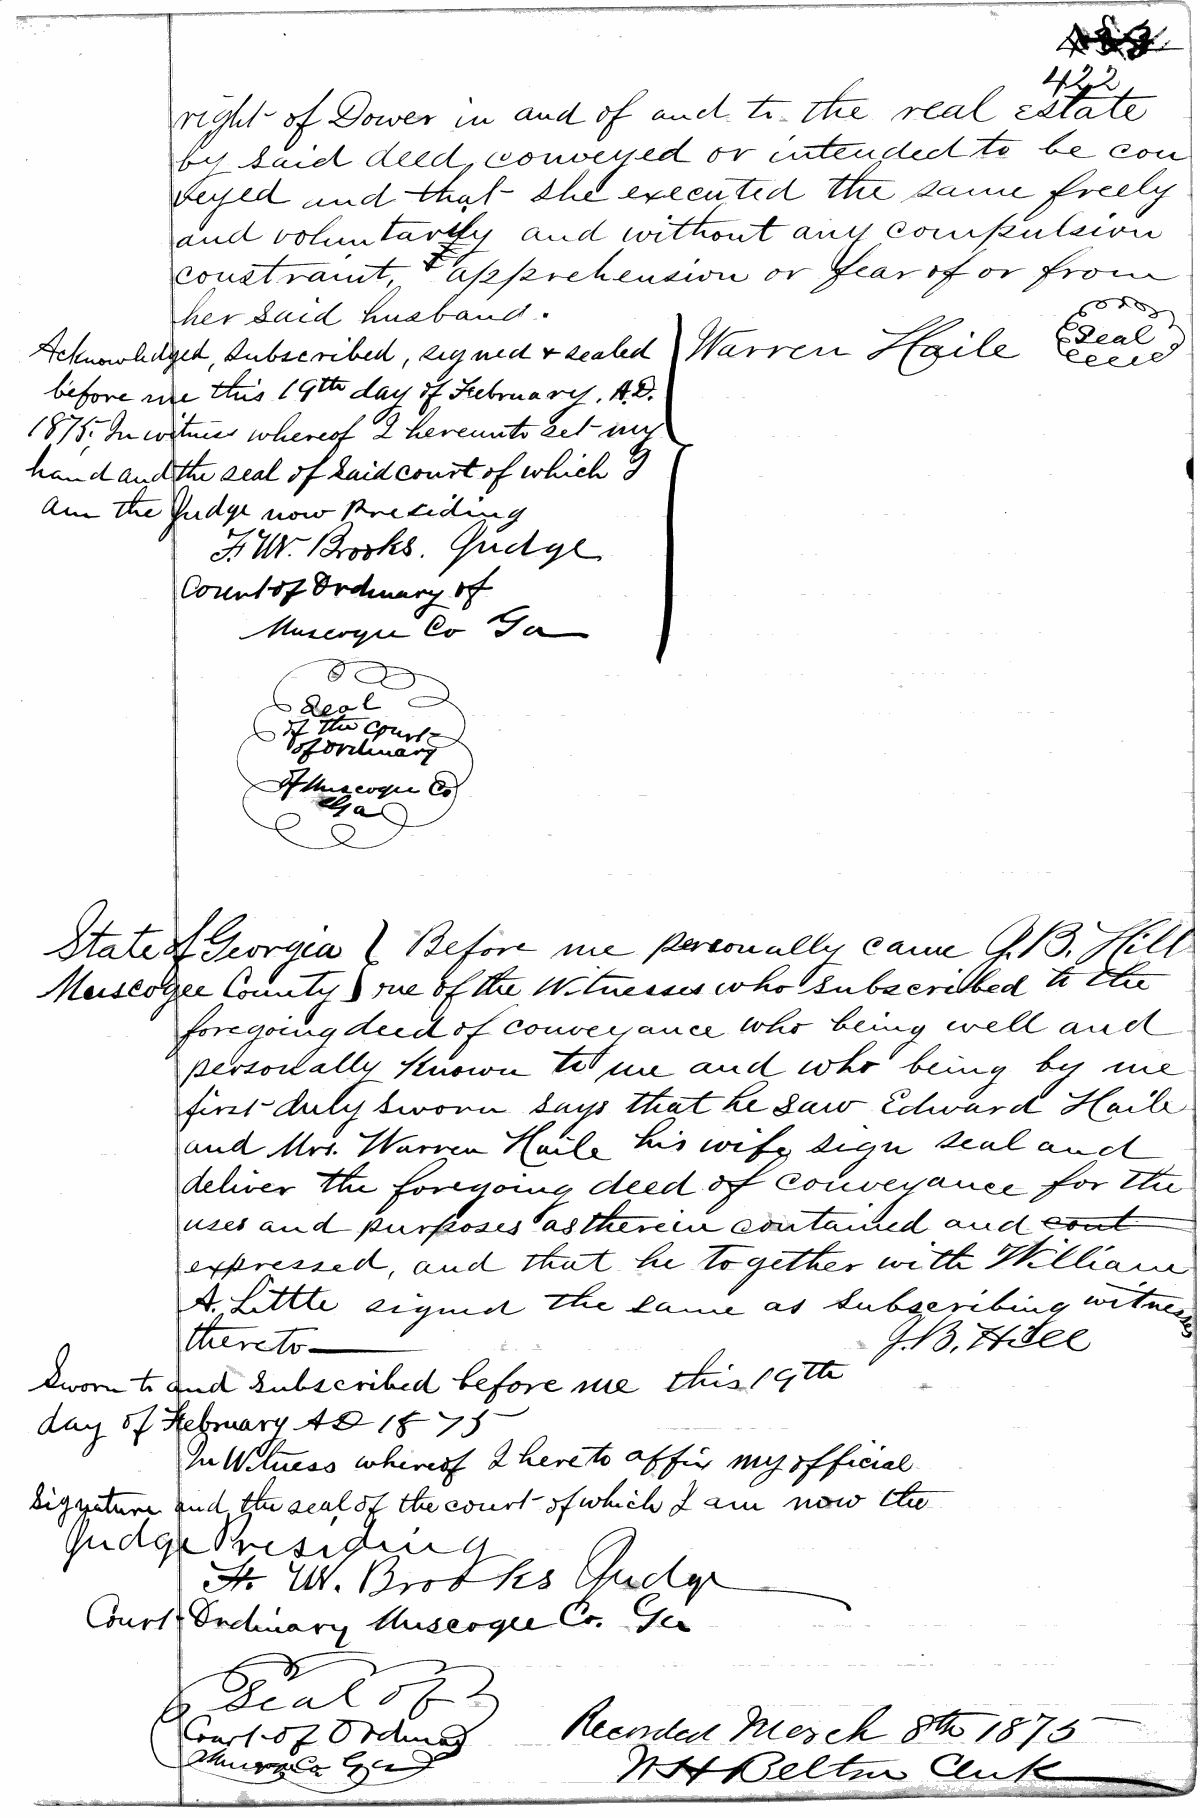 422
right of Dower in and of and to the real estate
by said deed conveyed or intended to be con
veyed and that she executed the same freely
and voluntarily and without any compulsion
constraint, apprehension or fear of or from
her said husband.
Acknowledged, subscribed, signed & sealed
before me this 19th day of February, A.D.
1875. In witness whereof I hereunto set my
hand and the seal of said court of which I
am the Judge now Presiding
F. W. Brooks. Judge
Court of Ordinary of
Muscogee Co Ga
Warren Haile
Seal
Seal
of the Court
of Ordinary
of Muscogee Co
Ga
State of Georgia } Before me personally came J. B. Hill
Muscogee County } one of the Witnesses who subscribed to the
foregoing deed of conveyance who being well and
personally Known to me and who being by me
first duly sworn says that he saw Edward Haile
and Mrs. Warren Haile his wife sign seal and
deliver the foregoing deed of conveyance for the
uses and purposes as therein contained and cont
expressed, and that he together with William
A. Little signed the same as subscribing witnesses
thereto
J. B. Hill
Sworn to and subscribed before me this 19th
day of February AD 1875
In Witness whereof I hereto affix my official
signature and the seal of the court of which I am now the
Judge Presiding
F. W. Brooks Judge
Court Ordinary Muscogee Co. Ga
Seal of
Court of Ordinary
Co Ga
Recorded March 8th 1875
W H Belton Clerk